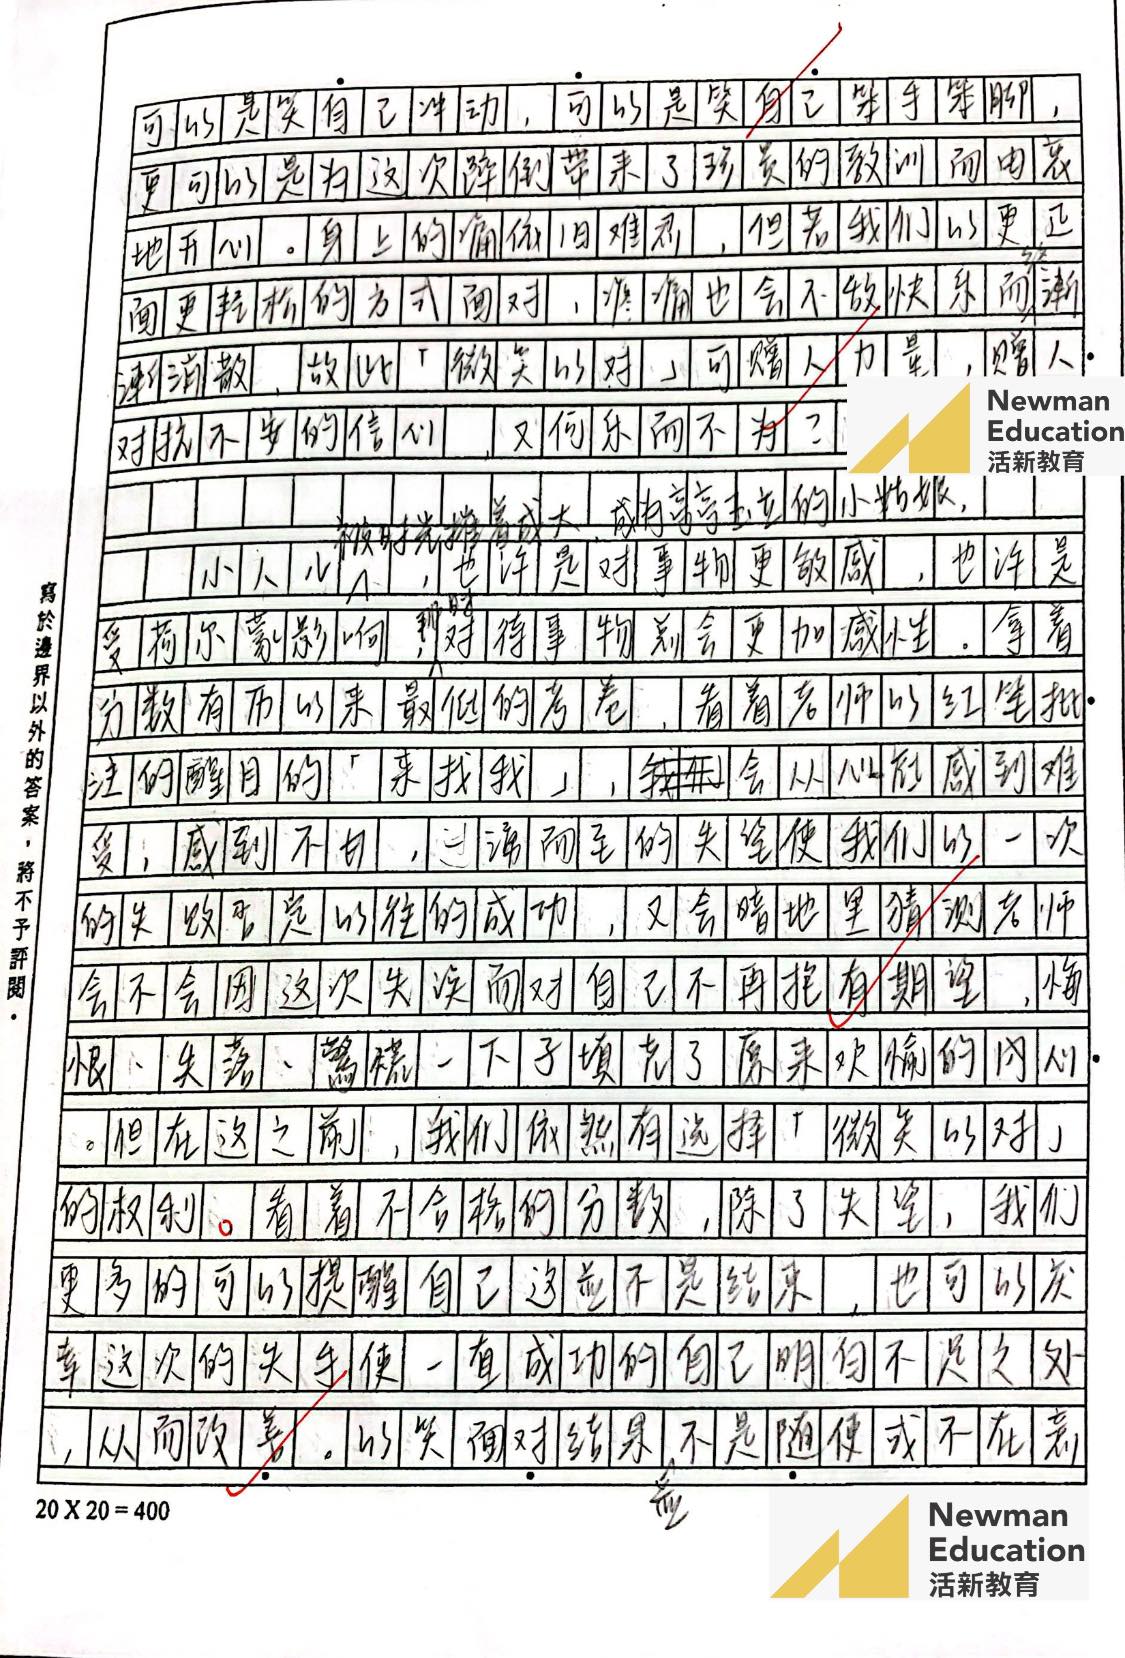 可以是笑自己冲动，可以是笑自己笨手笨脚，
更可以是为这次跌倒带来了珍贵的教训而由衷
地开心。身上的痛依旧难忍，但若我们以更正
面更轻松的方式面对，疼痛也会不敌快乐而渐
渐消散，故此「微笑以对」可赠人力量，赠人
对抗不安的信心，又何乐而不为？
Newman
Education
活新教育
被时光推着成大，成为亭亭玉立的小姑娘，
小人儿，也许是对事物更敏感，也许是
受荷尔蒙影响，那时对待事物总会更加感性。拿着
分数有历以来最低的考卷，看着老师以红笔批
注的醒目的「来找我」，会从心底感到难
受，感到不甘，涌而至的失望使我们以一次
的失败否定以往的成功，又会暗地里猜测老师
会不会因这次失误而对自己不再抱有期望，悔
恨、失落、惊慌一下子填充了原来欢愉的内心
。但在这之前，我们依然有选择「微笑以对」
的权利。看着不合格的分数，除了失望，我们
更多的可以提醒自己这並不是结束，也可以庆
幸这次的失手使一直成功的自己明白不足之处
，从而改善。以笑面对结果並不是随便或不在意
寫於邊界以外的答案，將不予評閱。
20 X 20 = 400
Newman
Education
活新教育